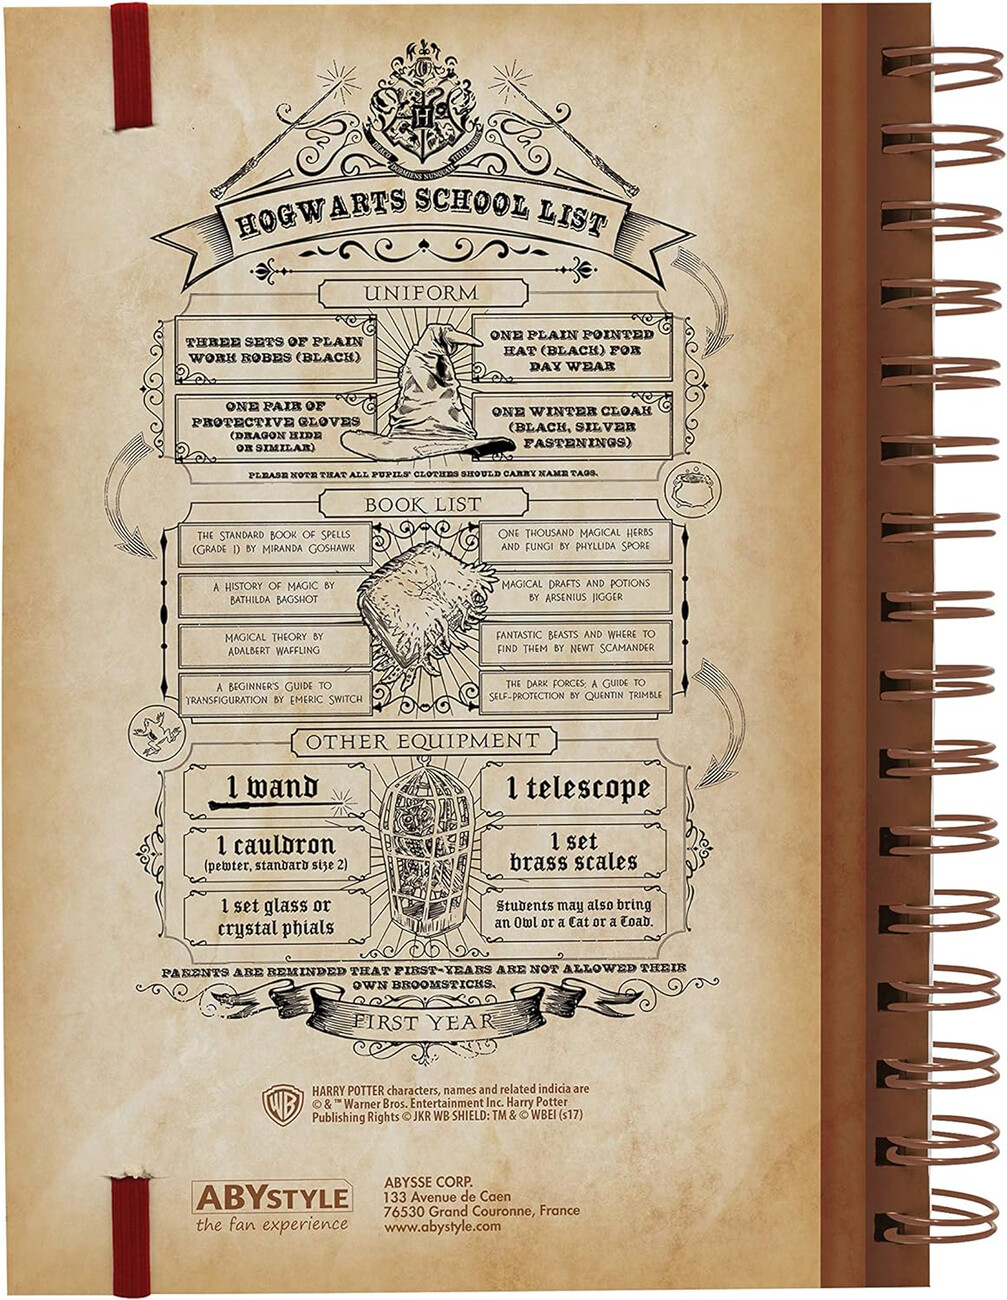 DRACO DORMIENS NUNQUAM TITILLANDUS
H
HOGWARTS SCHOOL LIST
UNIFORM
THREE SETS OF PLAIN
WORK ROBES (BLACK)
ONE PLAIN POINTED
HAT (BLACK) FOR
DAY WEAR
ONE PAIR OF
PROTECTIVE GLOVES
(DRAGON HIDE
OR SIMILAR)
ONE WINTER CLOAK
(BLACK, SILVER
FASTENINGS)
PLEASE NOTE THAT ALL PUPILS' CLOTHES SHOULD CARRY NAME TAGS.
BOOK LIST
THE STANDARD BOOK OF SPELLS
(GRADE 1) BY MIRANDA GOSHAWK
ONE THOUSAND MAGICAL HERBS
AND FUNGI BY PHYLLIDA SPORE
A HISTORY OF MAGIC BY
BATHILDA BAGSHOT
MAGICAL DRAFTS AND POTIONS
BY ARSENIUS JIGGER
MAGICAL THEORY BY
ADALBERT WAFFLING
FANTASTIC BEASTS AND WHERE TO
FIND THEM BY NEWT SCAMANDER
A BEGINNER'S GUIDE TO
TRANSFIGURATION BY EMERIC SWITCH
THE DARK FORCES: A GUIDE TO
SELF-PROTECTION BY QUENTIN TRIMBLE
OTHER EQUIPMENT
1 wand
1 telescope
1 cauldron
(pewter, standard size 2)
1 set
brass scales
1 set glass or
crystal phials
Students may also bring
an Owl or a Cat or a Toad.
PARENTS ARE REMINDED THAT FIRST-YEARS ARE NOT ALLOWED THEIR
OWN BROOMSTICKS.
FIRST YEAR
WB
HARRY POTTER characters, names and related indicia are
© & ™ Warner Bros. Entertainment Inc. Harry Potter
Publishing Rights © JKR WB SHIELD: TM & © WBEI (s17)
ABYSTYLE
the fan experience
ABYSSE CORP.
133 Avenue de Caen
76530 Grand Couronne, France
www.abystyle.com